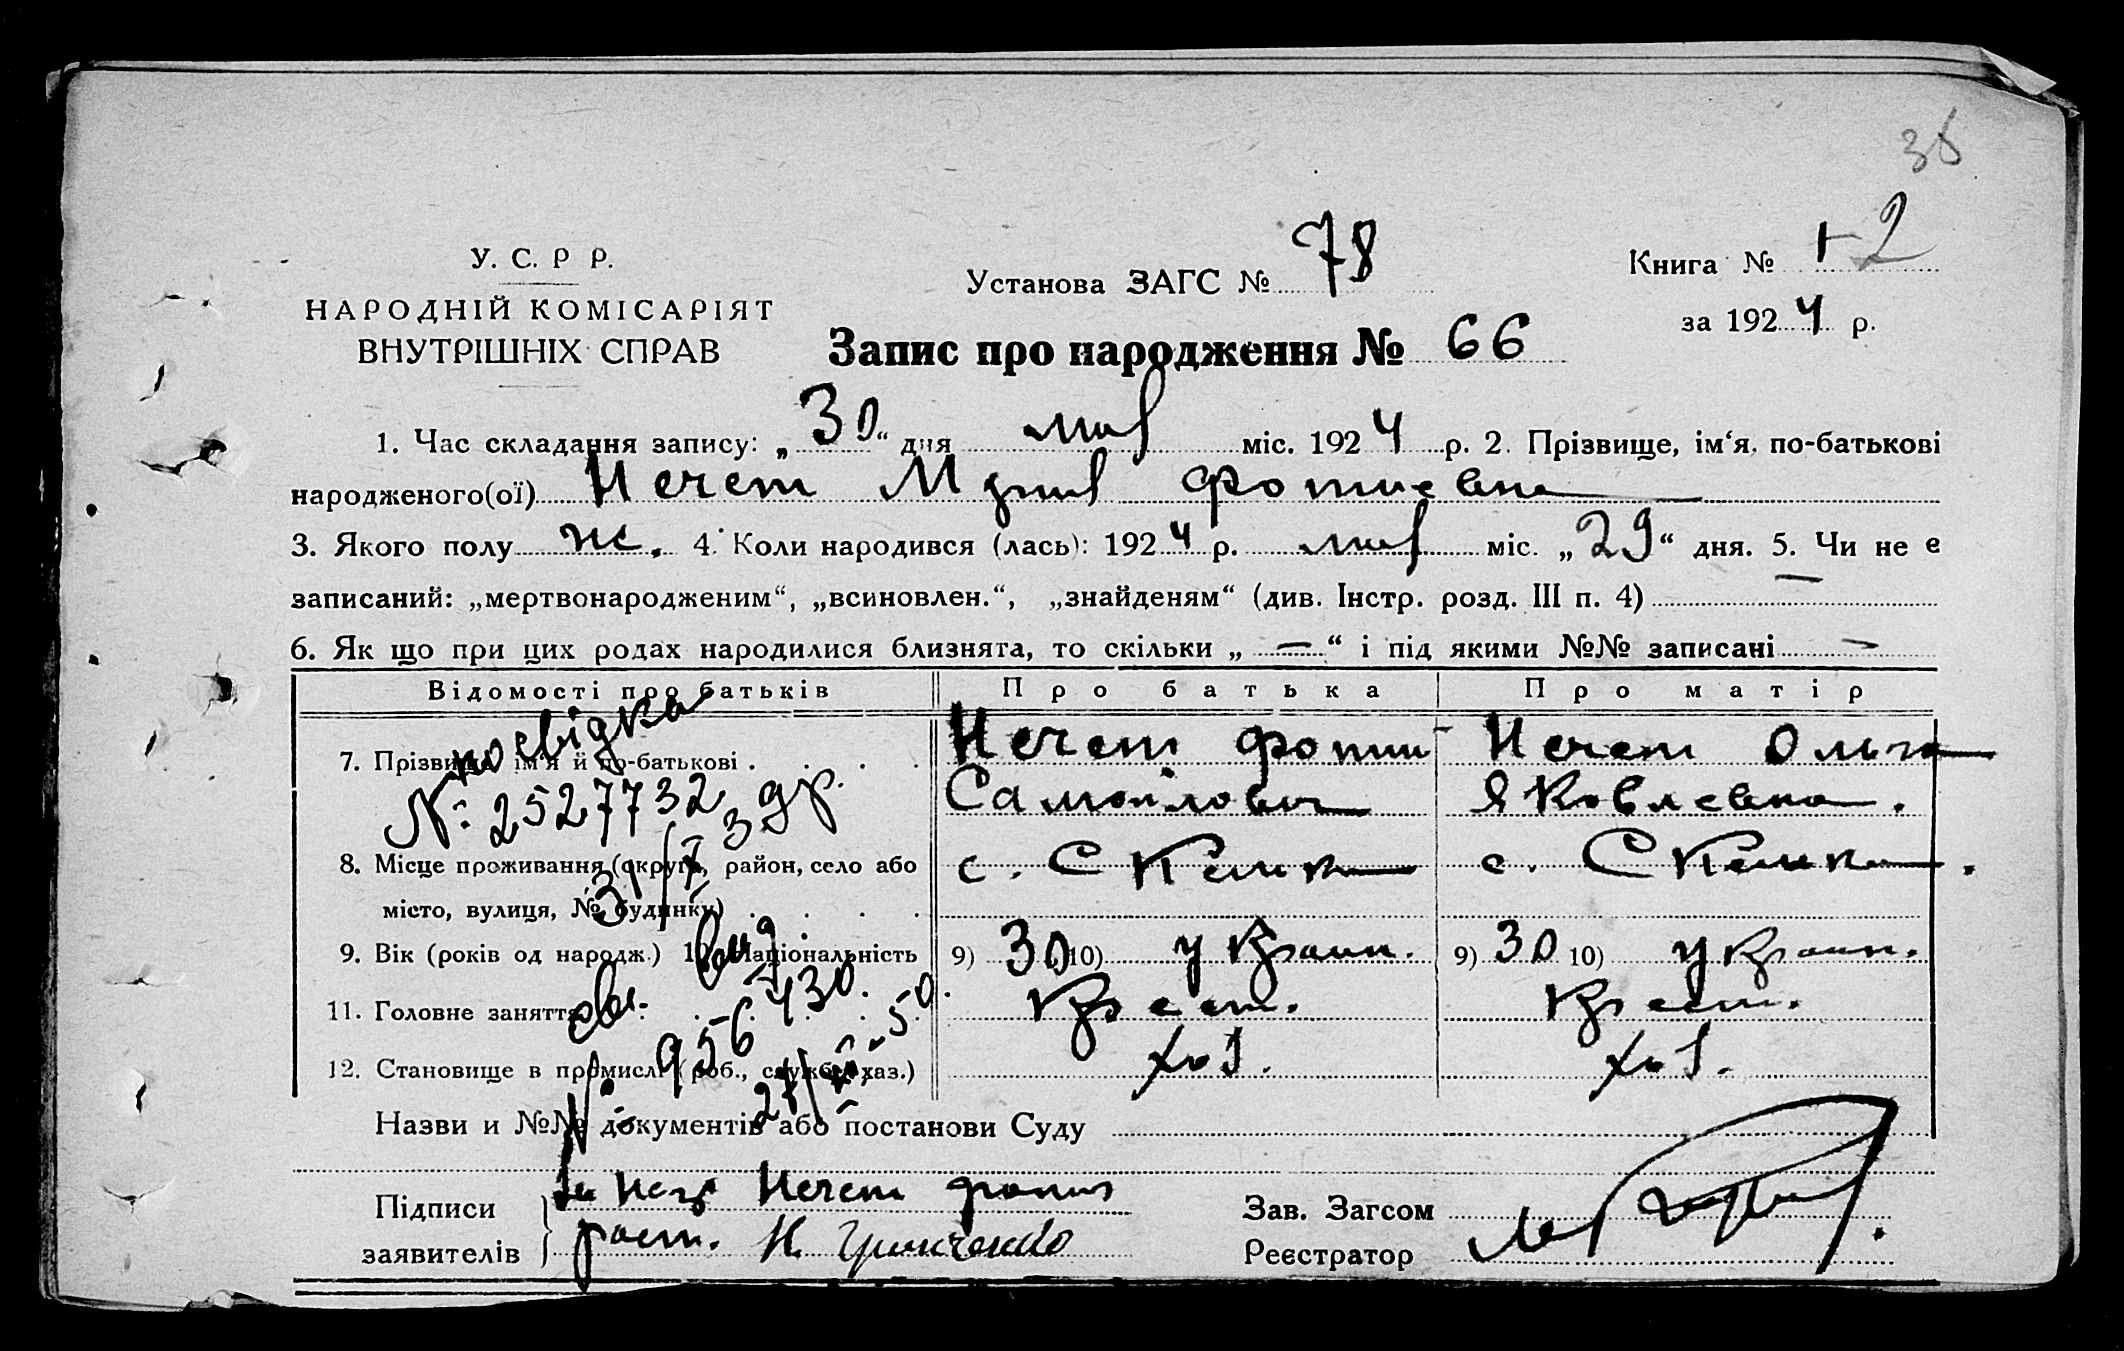 36
У. С. Р Р.
НАРОДНІЙ КОМІСАРІЯТ
ВНУТРІШНІХ СПРАВ
Установа ЗАГС № 78
Книга № 1 2
за 1924 р.
Запис про народження № 66
1. Час складання запису: „30“ дня мая міс. 1924 р. 2. Прізвище, ім‘я, по-батькові
народженого(ої) Нечет Мария Фотиевна
3. Якого полу ж. 4. Коли народився (лась): 1924 р. мая міс. „29“ дня. 5. Чи не є
записаний: „мертвонародженим“, „всиновлен.“, „знайденям“ (див. Інстр. розд. III п. 4) —
6. Як що при цих родах народилися близнята, то скільки „ — “ і під якими №№ записані —
Відомості про батьків Про батька Про матір
7. Прізвище, ім‘я й по-батькові . . . . Нечет Фотий Нечет Ольга
Самойлович Яковлевна.
посвідка
№: 2527732 др.
8. Місце проживання (округа, район, село або с. Скельки с. Скельки.
місто, вулиця, № будинку) . . . .
9. Вік (років од народж.) 10. Національність 9) 30 10) Украин. 9) 30 10) Украин.
11. Головне заняття Крест. Крест.
12. Становище в промислі (роб., службов. хаз.) хоз. хоз.
св. выд.
№ 956430. 50.
Назви и №№ документів або постанови Суду
Підписи За Нечет
заявителів рост. Н. Гринченко
Зав. Загсом
Реєстратор